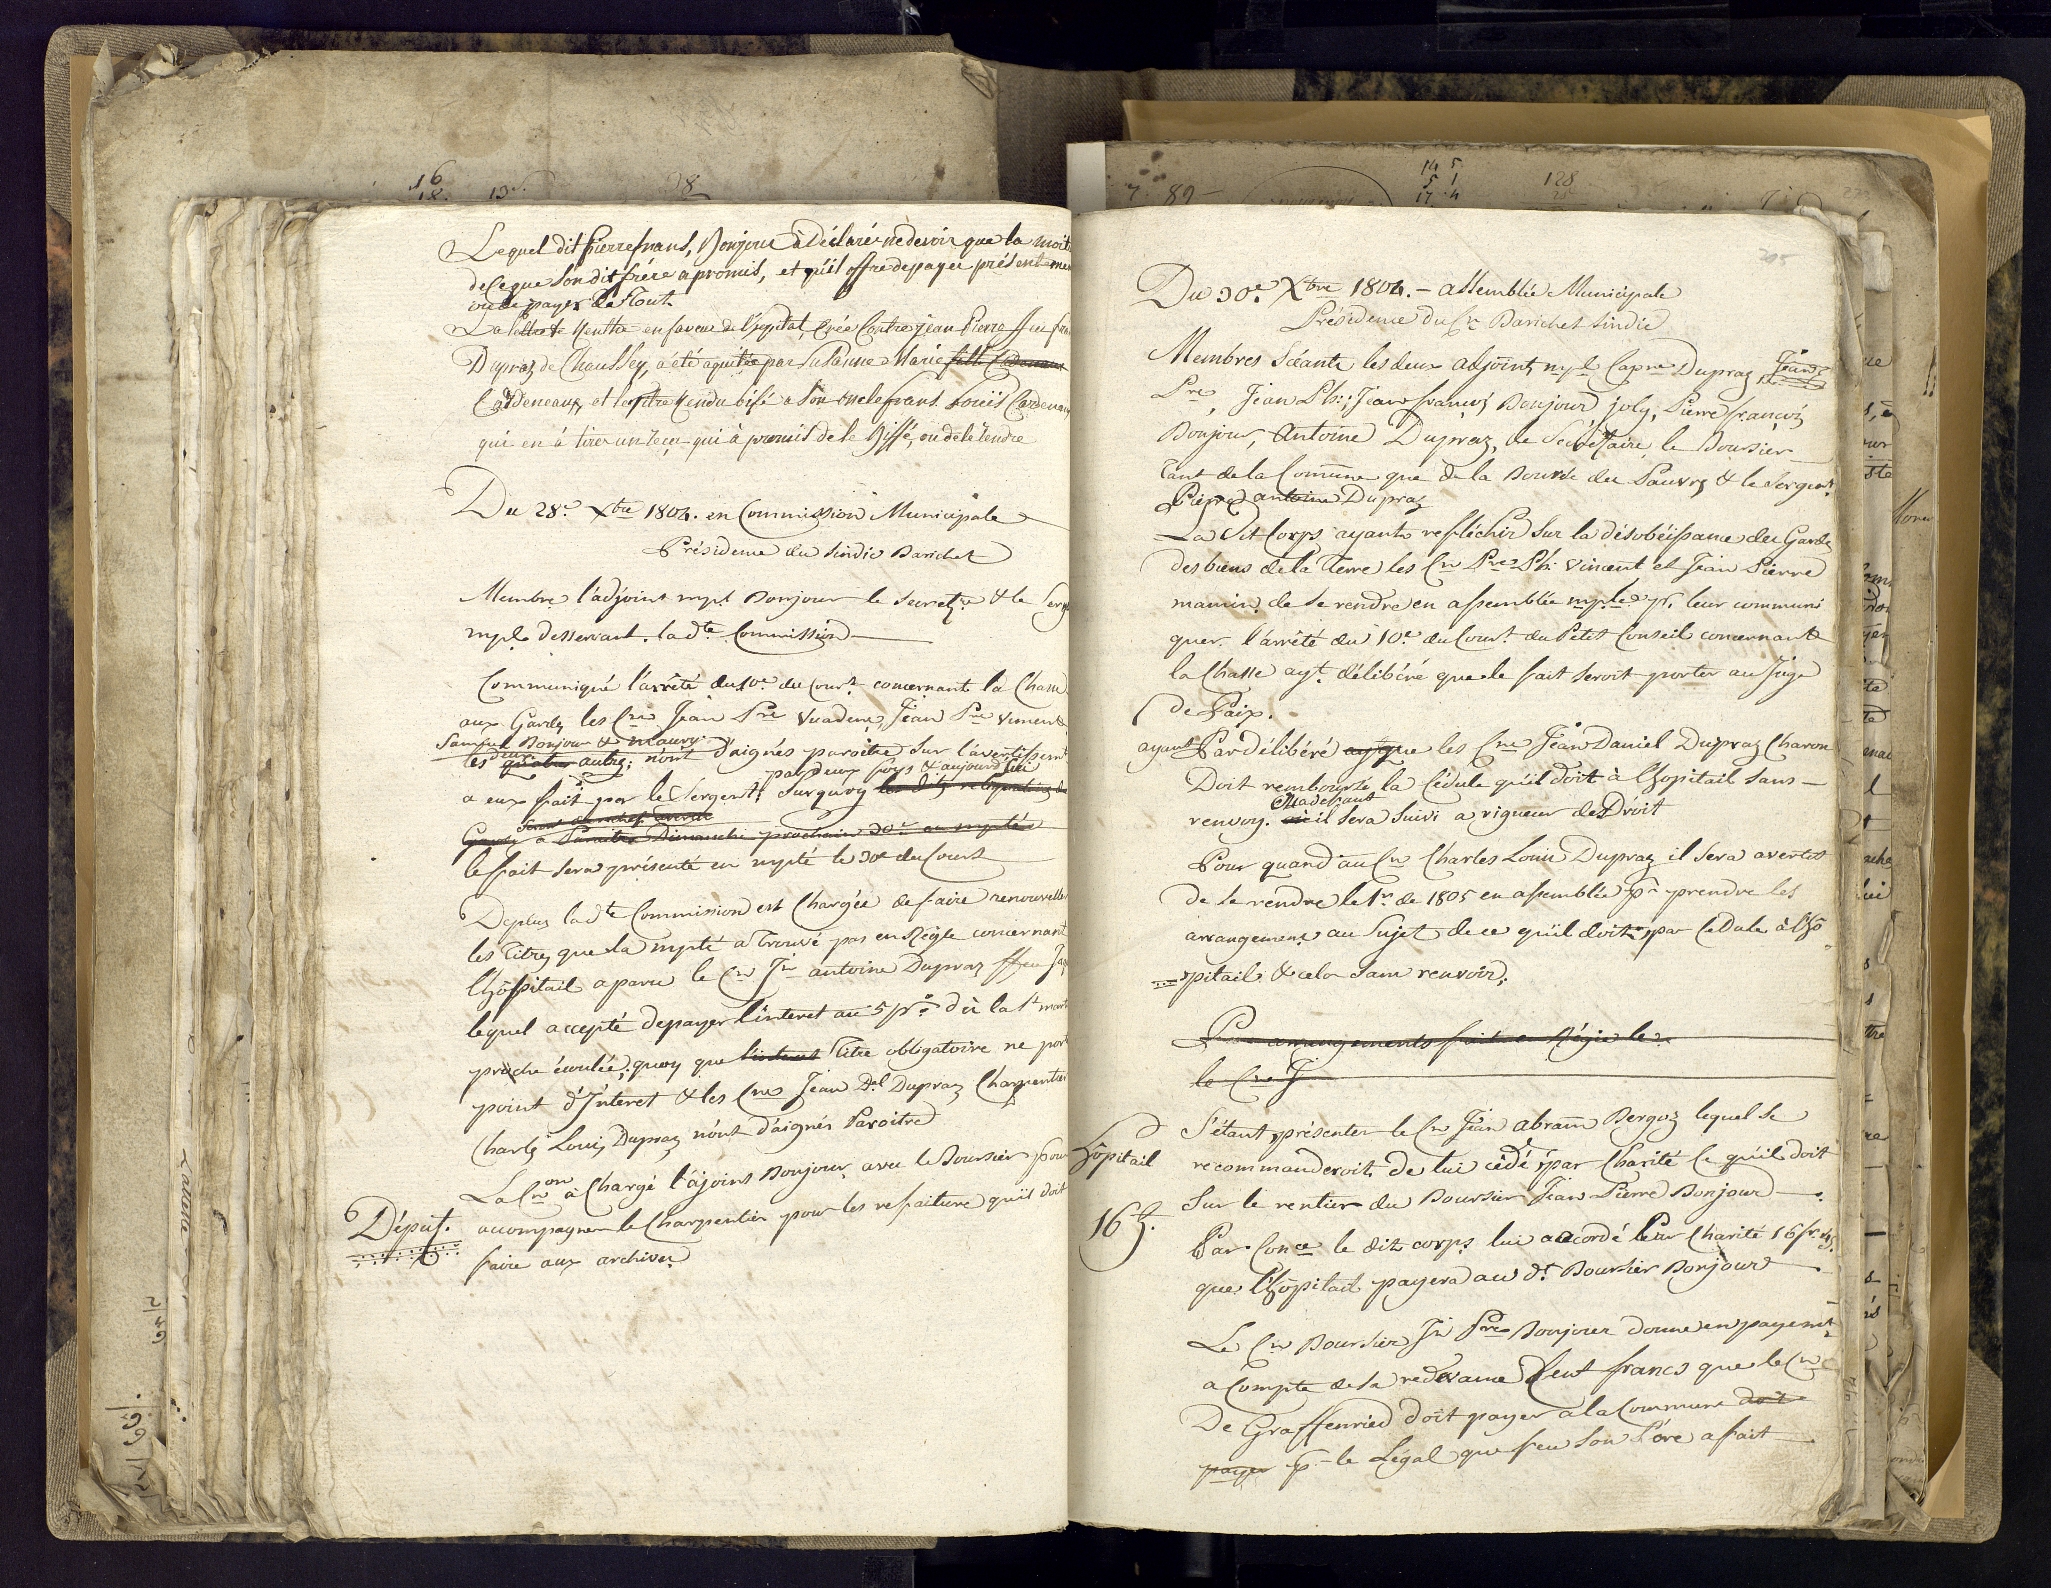 Lequel dit Pierre frans, Bonjour à Déclaré ne devoir que la moit
de ce que Son dit frére a promis, et qu'il offre de payer présenteme
ou de payer le Tout
La lettre de Rentte en faveur de l'hopital, Crée Contre jean Pierre ffeu fran
Dupraz de Chaussey, a été aquitée par Susanne Marie fille Cadeneaux
Caddeneaux, et le titre Rendu bifé a Son oncle frans. Louis Cardenaux
qui en à tirer un recu qui à promis de le Biffé, ou de le rendre
Du 28e. Xbre 1804. en Commission Municipale
Présidence du Sindic Barichet
Membre l'adjoint mpl. Bonjour le Secretre & le Serg
mple desservant. la dte. Commission
Communiqué l'arrêté du 10e. du Court. concernant la Chasse
aux Gardes les Cns Jean Pre Vuadens, Jean Pre Vincent
Samuel Bonjour & Mauroy
les quatres autres; n'ont d'aignés paroitre Sur l'avertissem
par deux foys & aujourd'hui
a eux fait par le Sergent; Surquoy les dits
Garde à Paraitre Dimanche prochain 30e en mpté
le fait Sera présenté en mpté le 30e du Court
Deplus la dte Commission est Chargée de faire renouveller
les Titres que la mpté a Trouvé pas en Règle concernant
l'hôpitail a parue le Cn Jn antoine Dupraz ffeu Ja
lequel accepté de payer l'interet au 5 pr. o dû la St mart
proche écoulée; quoy que l'interet Titre obligatoire ne port
point d'Interet & les Cns Jean Dl Dupraz Charpentier
Charles Louis Dupraz n'ont d'aignés Paroitre
La Cnon à Chargé l'ajoins Bonjour avec le Boursier pour
Députt. accompagner le Charpentier pour les refaiture qu'il doit
faire aux archives
Du 30e. Xbre 1804. - assemblée Municipale
Présidence du Cn Barichet Sindic
Membres Séants les deux adjoint, mpl Capne Dupraz Jean
Pre, Jean Ph: Jean françois Bonjour joly, Pierre françois
Bonjour, Antoine Dupraz, le Secrétaire, le Boursier
tant de la Commune que de la Bourse des Pauvres & le Sergent
Pierre antoine Dupraz
La dit Corps ayant refléchir Sur la désobéissance des Gardes
des biens de la Terre les Cn Pre Ph: Vincent et Jean Pierre
mamin, de Se rendre en assemblée mple pr. leur communi
quer l'arrêté du 10e. du Court. du Petit Conseil concernant
la Chasse ayt. délibéré que le fait Seroit porter au Juge
de Paix.
ayant Par délibéré que les Cns Jean Daniel Dupraz Charon
Doit rembourser la Cédule qu'il doit à l'hopitail Sans -
Madehaut
renvoy. il Sera Suivi a rigueur de Droit
Pour quand au Cn Charles Louis Dupraz il Sera avertit
de Se rendre le 1er. de 1805 en assemblée pr prendre les
arrangement au Sujet de ce qu'il doit, par Cedule à l'hô
pitail & cela Sans renvoir;
Pour arrangements fait en Régie le
le Cn J
S'étant présenter le Cn Jean abram Bergoz lequel Se
hôpitail recommanderoit de lui cédé par Charité Ce qu'il doit
Sur le rentier du Boursier Jean Pierre Bonjour
16 f. Par Conce le dit corps lui accordé Par Charité 16 fr.
que l'hôpitail payera au dt. Boursier Bonjour
Le Cn Boursier Jn Pre Bonjour donne en payemt
a Compte de Sa redevance Cent francs que le Cn
De Graffenried doit payer a la Commune doit
payer pr le Légal que feu Son Pére a fait